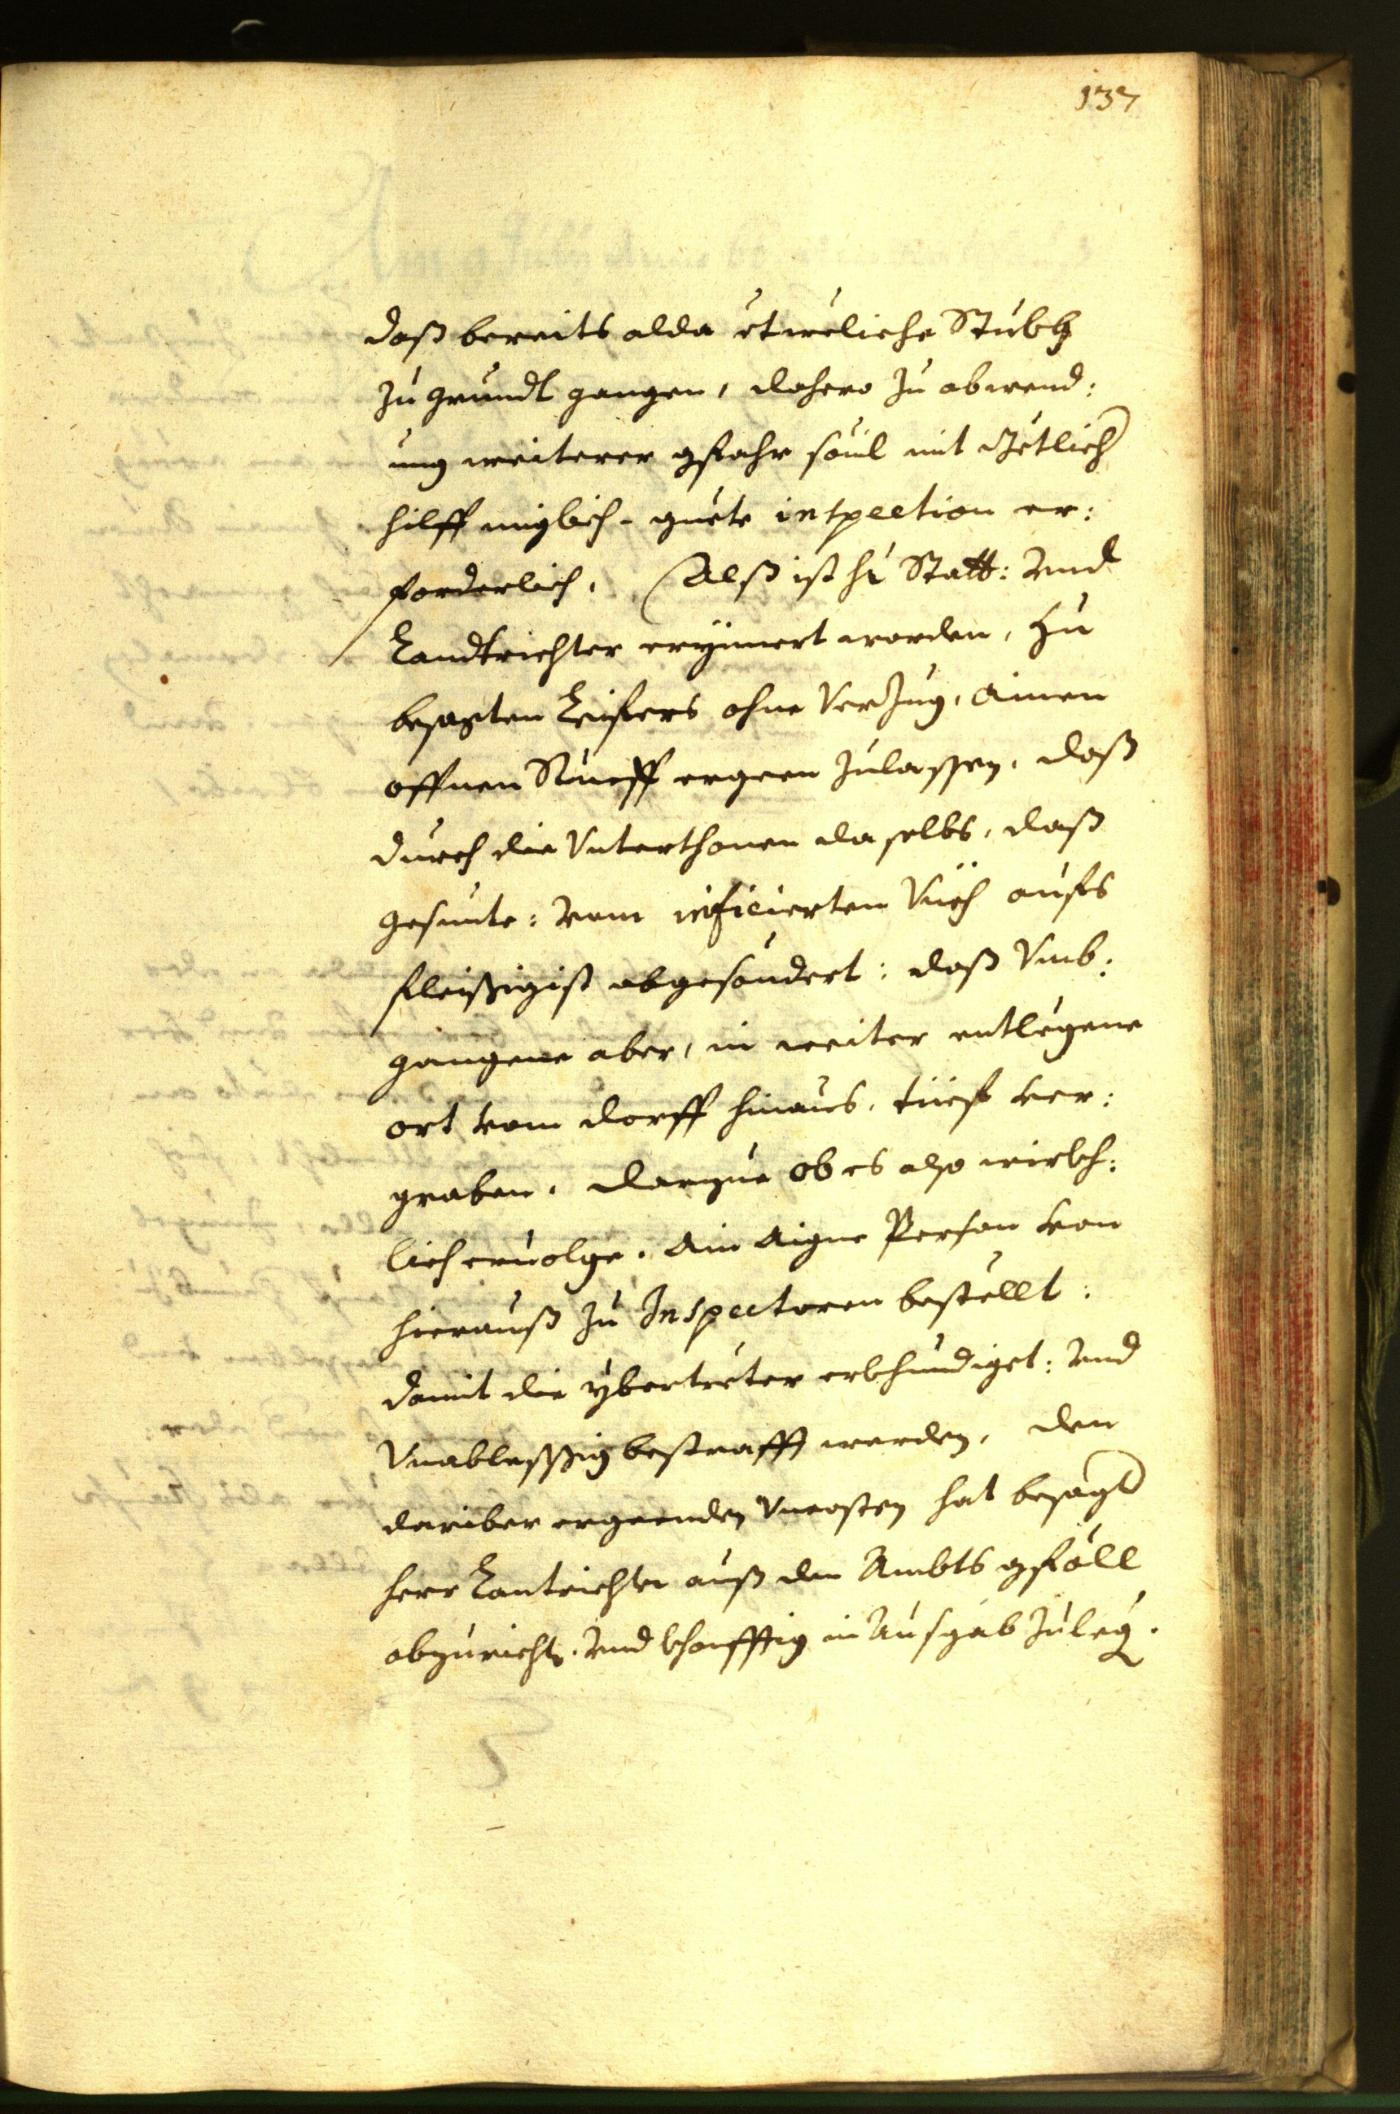 137
daß bereits alda etweliche Stuckh
zu grundt gangen, dahero zu abwend:
ung weiterer gfahr souil mit Götlicher
hilff miglich - guete inspection er:
forderlich, Alß ist hr Statt: vnd
Landtrichter erynnert worden, zu
besagten Leifers ohne Verzug, ainen
offnen Rueff ergeen zulassen, daß
durch die Vnterthonen daselbs, daß
gesunte: vom inficierten Viech aufs
fleissigist abgesöndert: daß Vmb:
gangene aber, in weiter entlegene
ort vom dorff hinaus, tüeff ver:
graben, darzue ob es also wirckh:
lich ervolge, ain aigne Person von
hierauß zu Inspectoren bestellt:
damit die yberträter erkhundiget: vnd
Vnablessig bestrafft werden, den
dariber ergeenden Vncosten hat besagter
herr Lantrichter auß den Ambts gföll
abzurichten, vnd khonfftig in Ausgab zulegen.